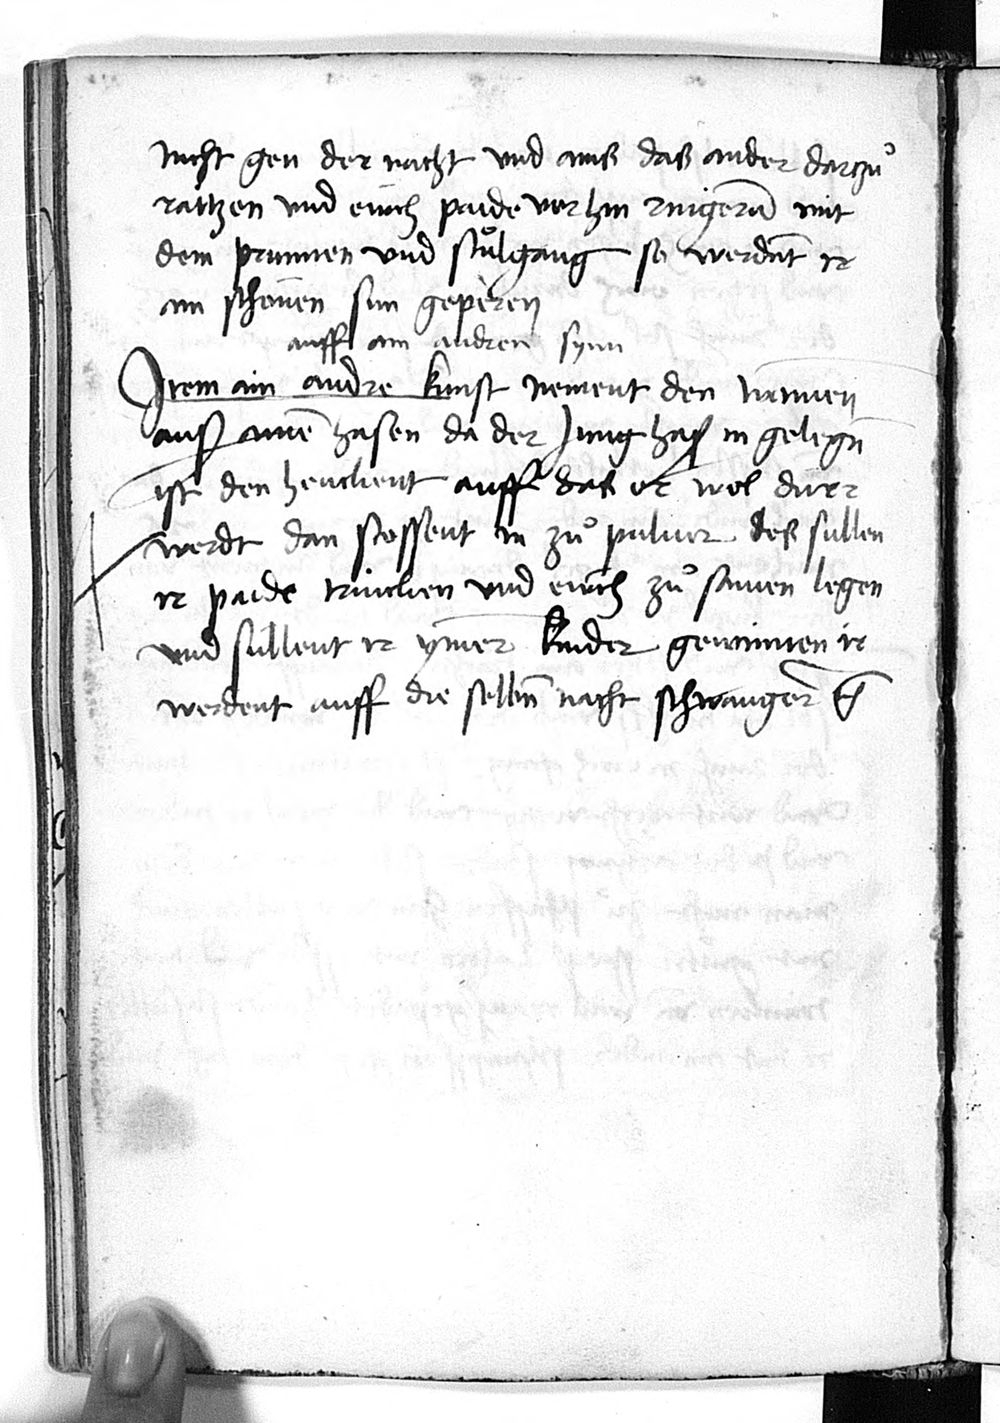 nicht gen der nacht und ains das ander darzuͦ
raitzen und euch paide vor hin ringernd mit
dem prunnen und stuͦlgang so werdent ir
ain schonen sun geperen
auff ain andren synn
Item ain andre kunst nement den
auß aine hasen da der Jung haß in gelegn
ist den henckent auff das er wol durr
werdt dan stossent in zuͦ puluer deß sullen
ir paide trincken und euch zuͦ samen legen
und sullent ir ymer kinder gewinnen ir
werdent auff die selbin nacht schwanger